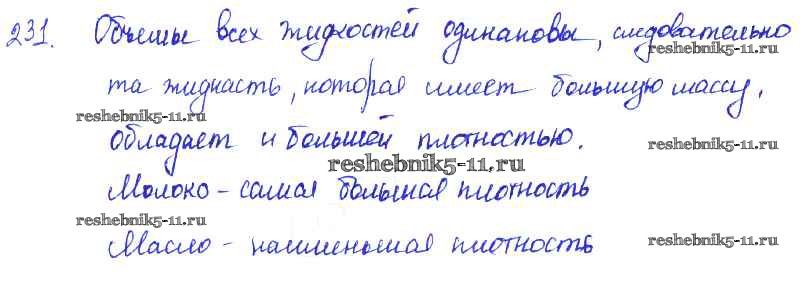 231. Объемы всех жидкостей одинаковы, следовательно
reshebnik5-11.ru
та жидкость, которая имеет большую массу,
reshebnik5-11.ru
обладает и большей плотностью.
reshebnik5-11.ru
reshebnik5-11.ru
Молоко - самая большая плотность
reshebnik5-11.ru
Масло - наименьшая плотность
reshebnik5-11.ru